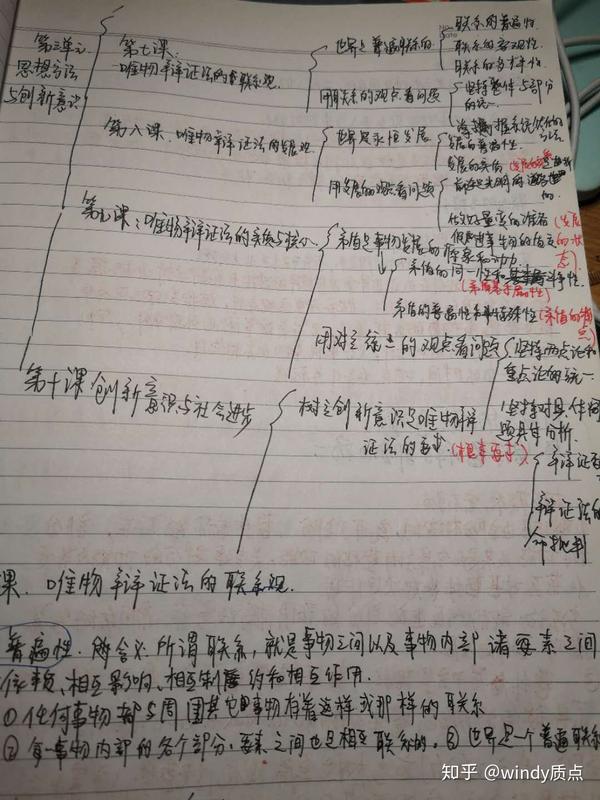 联系的普遍性
第三单元
思想方法
与创新意识
第七课
唯物辩证法的联系观
世界是普遍联系的
联系的客观性
联系的多样性
用联系的观点看问题
坚持整体与部分
的统一
第八课、唯物辩证法的发展观
世界是永恒发展
发展的普遍性
发展的实质
用发展的观点看问题
做好量变的准备
第九课：唯物辩证法的实质与核心
矛盾是事物发展的
和动力
(发展
的状
态)
矛盾的同一性和斗争性
(矛盾基本属性)
矛盾的普遍性和特殊性
(矛盾的特
点)
用对立统一的观点看问题
坚持两点论和
重点论的统一
坚持对具体问
题具体分析
第十课 创新意识与社会进步
树立创新意识是唯物辩
证法的要求
辩证否
辩证法的
命批判
课、唯物辩证法的联系观.
普遍性. 含义: 所谓联系，就是事物之间以及事物内部诸要素之间
依赖、相互影响、相互制约和相互作用.
①任何事物都与周围其它事物有着这样或那样的联系
②每一事物内部的各个部分、要素之间也是相互联系的。③世界是一个普遍联系
知乎 @windy质点